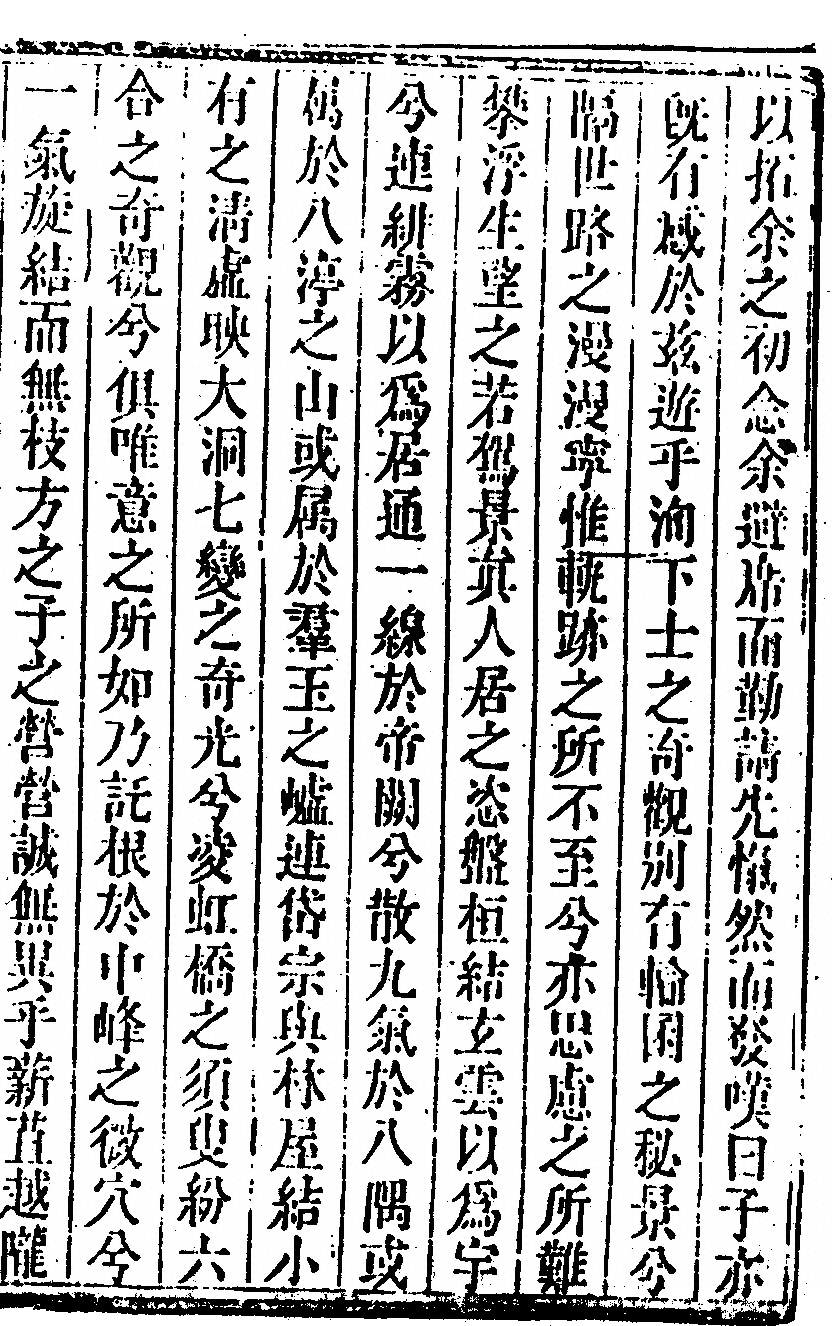 以拓余之初念余避席而勤請先惟然而發嘆曰子亦
既有感於茲遊乎洵下士之奇觀別有輪囷之秘景兮
隔世路之漫漫寧惟軌跡之所不至兮亦思慮之所難
攀浮生望之若駕景眞人居之恣盤桓結玄雲以爲宇
兮連絳霧以爲居通一線於帝關兮散九氣於八隅或
屬於八渟之山或属於羣玉之嶟連岱宗與林屋結小
有之清虛映大洞七變之奇光兮凌虹橋之須臾紛六
合之奇觀兮俱唯意之所如乃託根於中峰之微穴兮
一氣旋結而無枝方之子之營營誠無異乎薪苴越隴